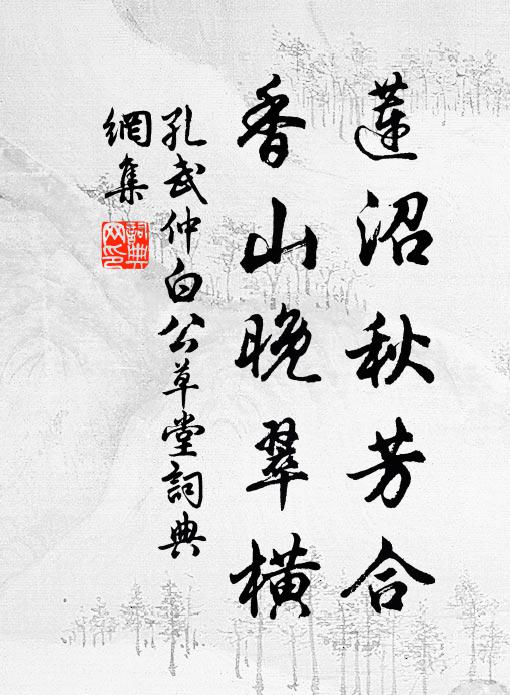 蓮沼秋芳合
香山晚翠橫
孔武仲白公草堂詞典
網集
詞典網印